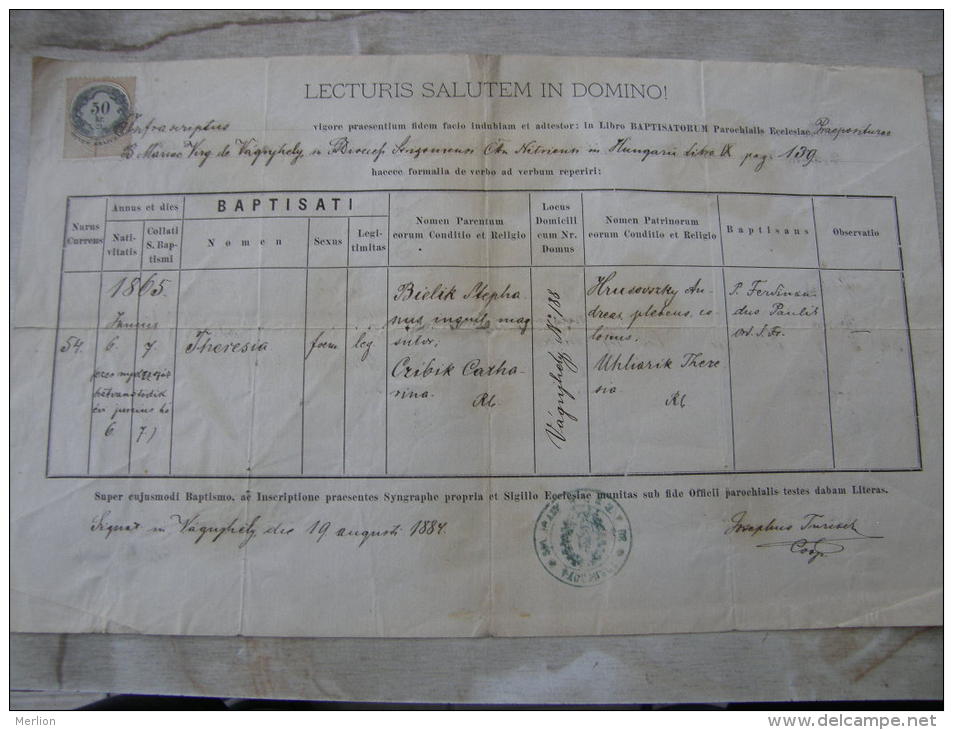 50
kr.
LECTURIS SALUTEM IN DOMINO!
Infrascriptus vigore praesentium fidem facio indubiam et adtestor: in Libro BAPTISATORUM Parochialis Ecclesiae Praepositurae
B. Mariae Virg. de Vágujhely in Hungaria Libro IX pag. 139.
haecce formalia de verbo ad verbum reperiri:
Nurus Currens
Annus et dies
Nativitatis
Collati S. Baptismi
BAPTISATI
Nomen
Sexus
Legitimitas
Nomen Parentum
eorum Conditio et Religio
Locus
Domicilii
cum Nr.
Domus
Nomen Patrinorum
eorum Conditio et Religio
Baptisans
Observatio
1865.
54.
6. 7.
Theresia
foem
leg.
Bielik Stepha-
nus, inquil. mag.
sutor,
Cribik Catha-
rina.
RC.
Vágujhely No 188
Hrusovszky An-
dreas, plebeus, co-
lonus,
Uhlarik There
sia
RC
P. Ferdinan-
dus Paulit
Ord. S. Fr.
—
6. 7.)
Super cujusmodi Baptismo, ac Inscriptione praesentes Syngrapha propria et Sigillo Ecclesiae munitas sub fide Officii parochialis testes dabam Literas.
Signat. in Vágujhely die 19 augusti 1884.
Josephus Turisch
Coop.
Merlion
www.delcampe.net